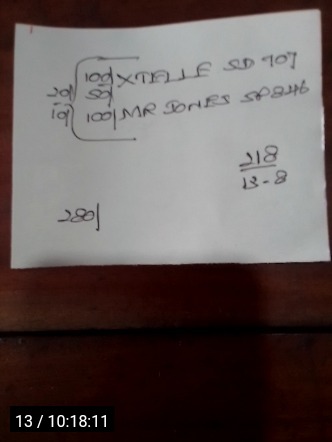 100/ XTELLE SD 907
20/ 50/
10/ 100/ MR JONES SP 846
218
13-8
280/
13 / 10:18:11